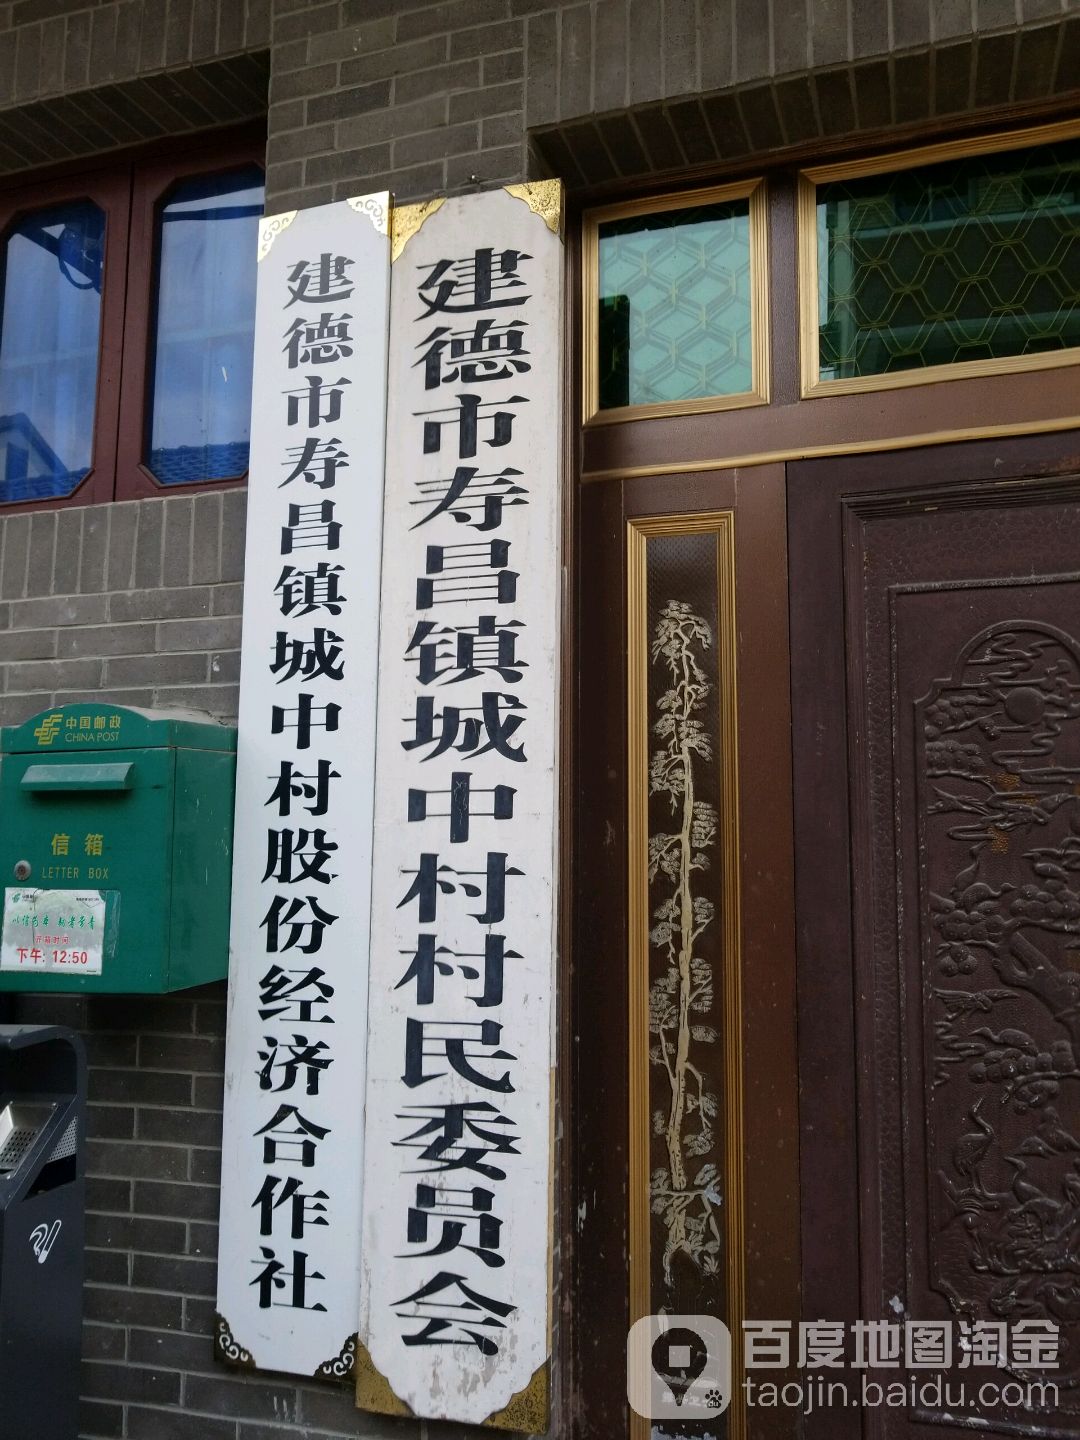 建德市寿昌镇城中村股份经济合作社
建德市寿昌镇城中村村民委员会
中国邮政
CHINA POST
信箱
LETTER BOX
开箱时间
下午: 12:50
百度地图淘金
taojin.baidu.com